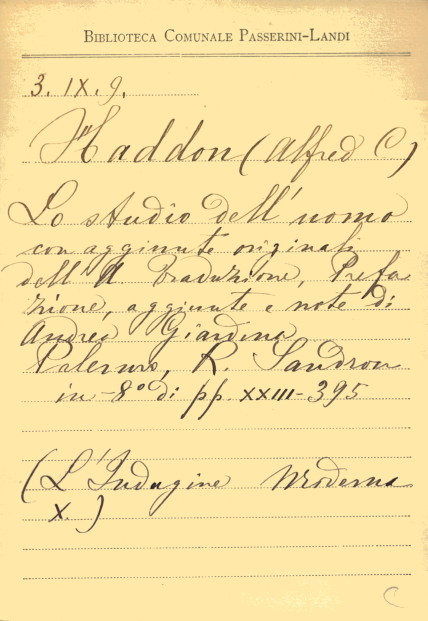 BIBLIOTECA COMUNALE PASSERINI-LANDI
3. IX. 9.
Haddon (Alfred C)
Lo studio dell'uomo
con aggiunte originali
dell'A Traduzione, Prefa
zione, aggiunte e note di
Andrea Giardina
Palermo, R. Sandron
in-8º di pp. XXIII-395
(L'Indagine Moderna
X.)
C